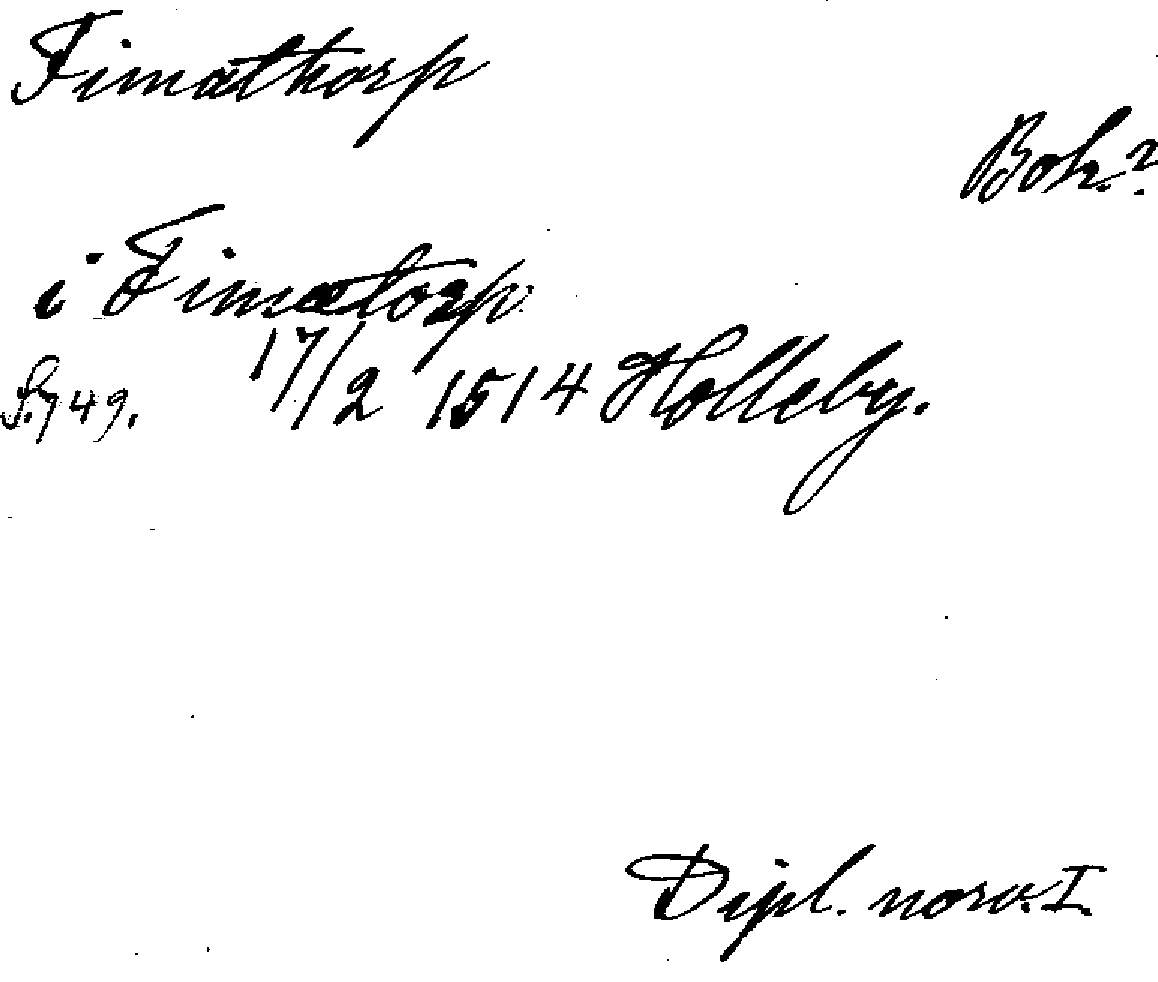 Fimathorp
Boh.?
i Fimatorp
S. 749. 17/2 1514 Holleby.
Dipl. norv. I.